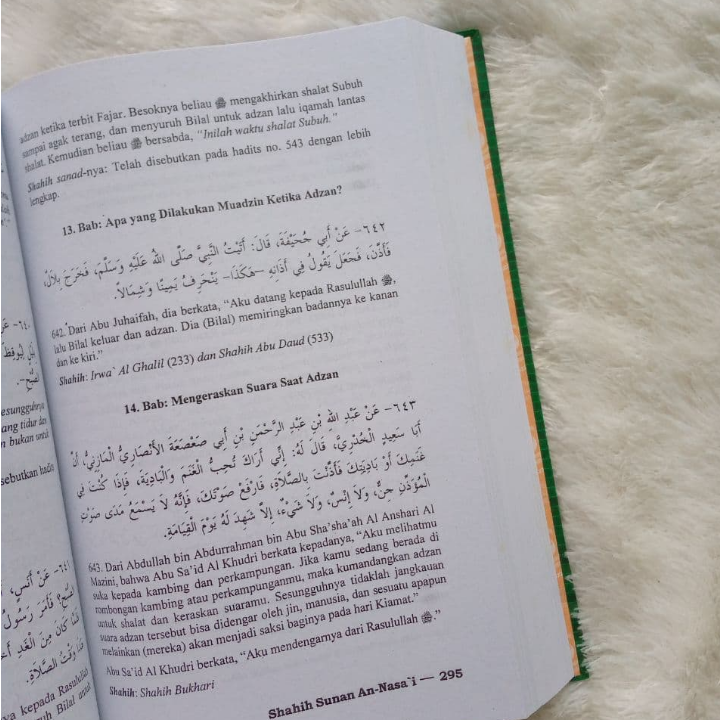 adzan ketika terbit Fajar. Besoknya beliau ﷺ mengakhirkan shalat Subuh
sampai agak terang, dan menyuruh Bilal untuk adzan lalu iqamah lantas
shalat. Kemudian beliau ﷺ bersabda, "Inilah waktu shalat Subuh."
Shahih sanad-nya: Telah disebutkan pada hadits no. 543 dengan lebih
lengkap.
13. Bab: Apa yang Dilakukan Muadzin Ketika Adzan?
٦٤٢- عَنْ أَبِي جُحَيْفَةَ، قَالَ: أَتَيْتُ النَّبِيَّ صَلَّى اللهُ عَلَيْهِ وَسَلَّمَ، فَخَرَجَ بِلاَلٌ،
فَأَذَّنَ، فَجَعَلَ يَقُولُ فِي أَذَانِهِ –هَكَذَا– يَنْحَرِفُ يَمِينًا وَشِمَالاً.
642. Dari Abu Juhaifah, dia berkata, "Aku datang kepada Rasulullah ﷺ,
lalu Bilal keluar dan adzan. Dia (Bilal) memiringkan badannya ke kanan
dan ke kiri."
Shahih: Irwa` Al Ghalil (233) dan Shahih Abu Daud (533)
14. Bab: Mengeraskan Suara Saat Adzan
٦٤٣- عَنْ عَبْدِ اللهِ بْنِ عَبْدِ الرَّحْمَنِ بْنِ أَبِي صَعْصَعَةَ الأَنْصَارِيُّ الْمَازِنِيُّ، أَنَّ
أَبَا سَعِيدٍ الْخُدْرِيَّ، قَالَ لَهُ: إِنِّي أَرَاكَ تُحِبُّ الْغَنَمَ وَالْبَادِيَةَ، فَإِذَا كُنْتَ فِي
غَنَمِكَ أَوْ بَادِيَتِكَ فَأَذَّنْتَ بِالصَّلاَةِ، فَارْفَعْ صَوْتَكَ، فَإِنَّهُ لاَ يَسْمَعُ مَدَى صَوْتِ
الْمُؤَذِّنِ جِنٌّ، وَلاَ إِنْسٌ، وَلاَ شَيْءٌ، إِلاَّ شَهِدَ لَهُ يَوْمَ الْقِيَامَةِ.
643. Dari Abdullah bin Abdurrahman bin Abu Sha'sha'ah Al Anshari Al
Mazini, bahwa Abu Sa'id Al Khudri berkata kepadanya, "Aku melihatmu
suka kepada kambing dan perkampungan. Jika kamu sedang berada di
rombongan kambing atau perkampunganmu, maka kumandangkan adzan
untuk shalat dan keraskan suaramu. Sesungguhnya tidaklah jangkauan
suara adzan tersebut bisa didengar oleh jin, manusia, dan sesuatu apapun
melainkan (mereka) akan menjadi saksi baginya pada hari Kiamat."
Abu Sa'id Al Khudri berkata, "Aku mendengarnya dari Rasulullah ﷺ."
Shahih: Shahih Bukhari
Shahih Sunan An-Nasa`i — 295